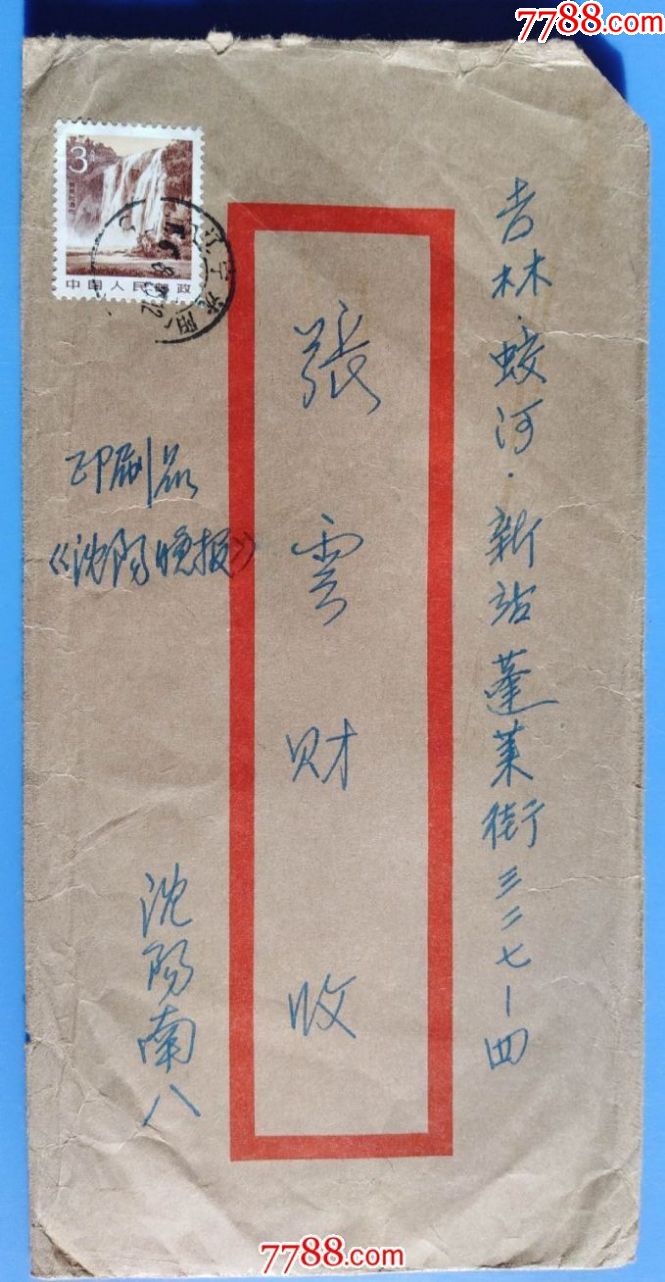 7788.com
吉林·蛟河·新站蓬莱街三二七-四
張雲财收
3分
中国人民邮政
辽宁沈阳
印刷品
《沈阳晚报》
沈阳南八
7788.com